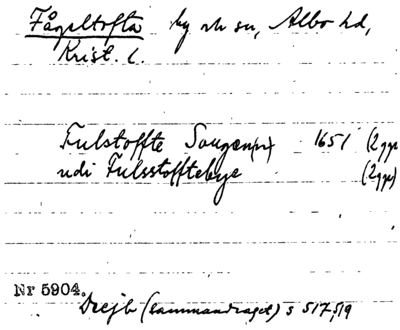 Fågeltofta by o sn, Albo hd,
Krist. l.
Fulstoffte Sougen(n) 1651 (2ggr
udi Fulsstofftebye (2ggr)
Nr 5904.
(sammandraget) s 517, 519